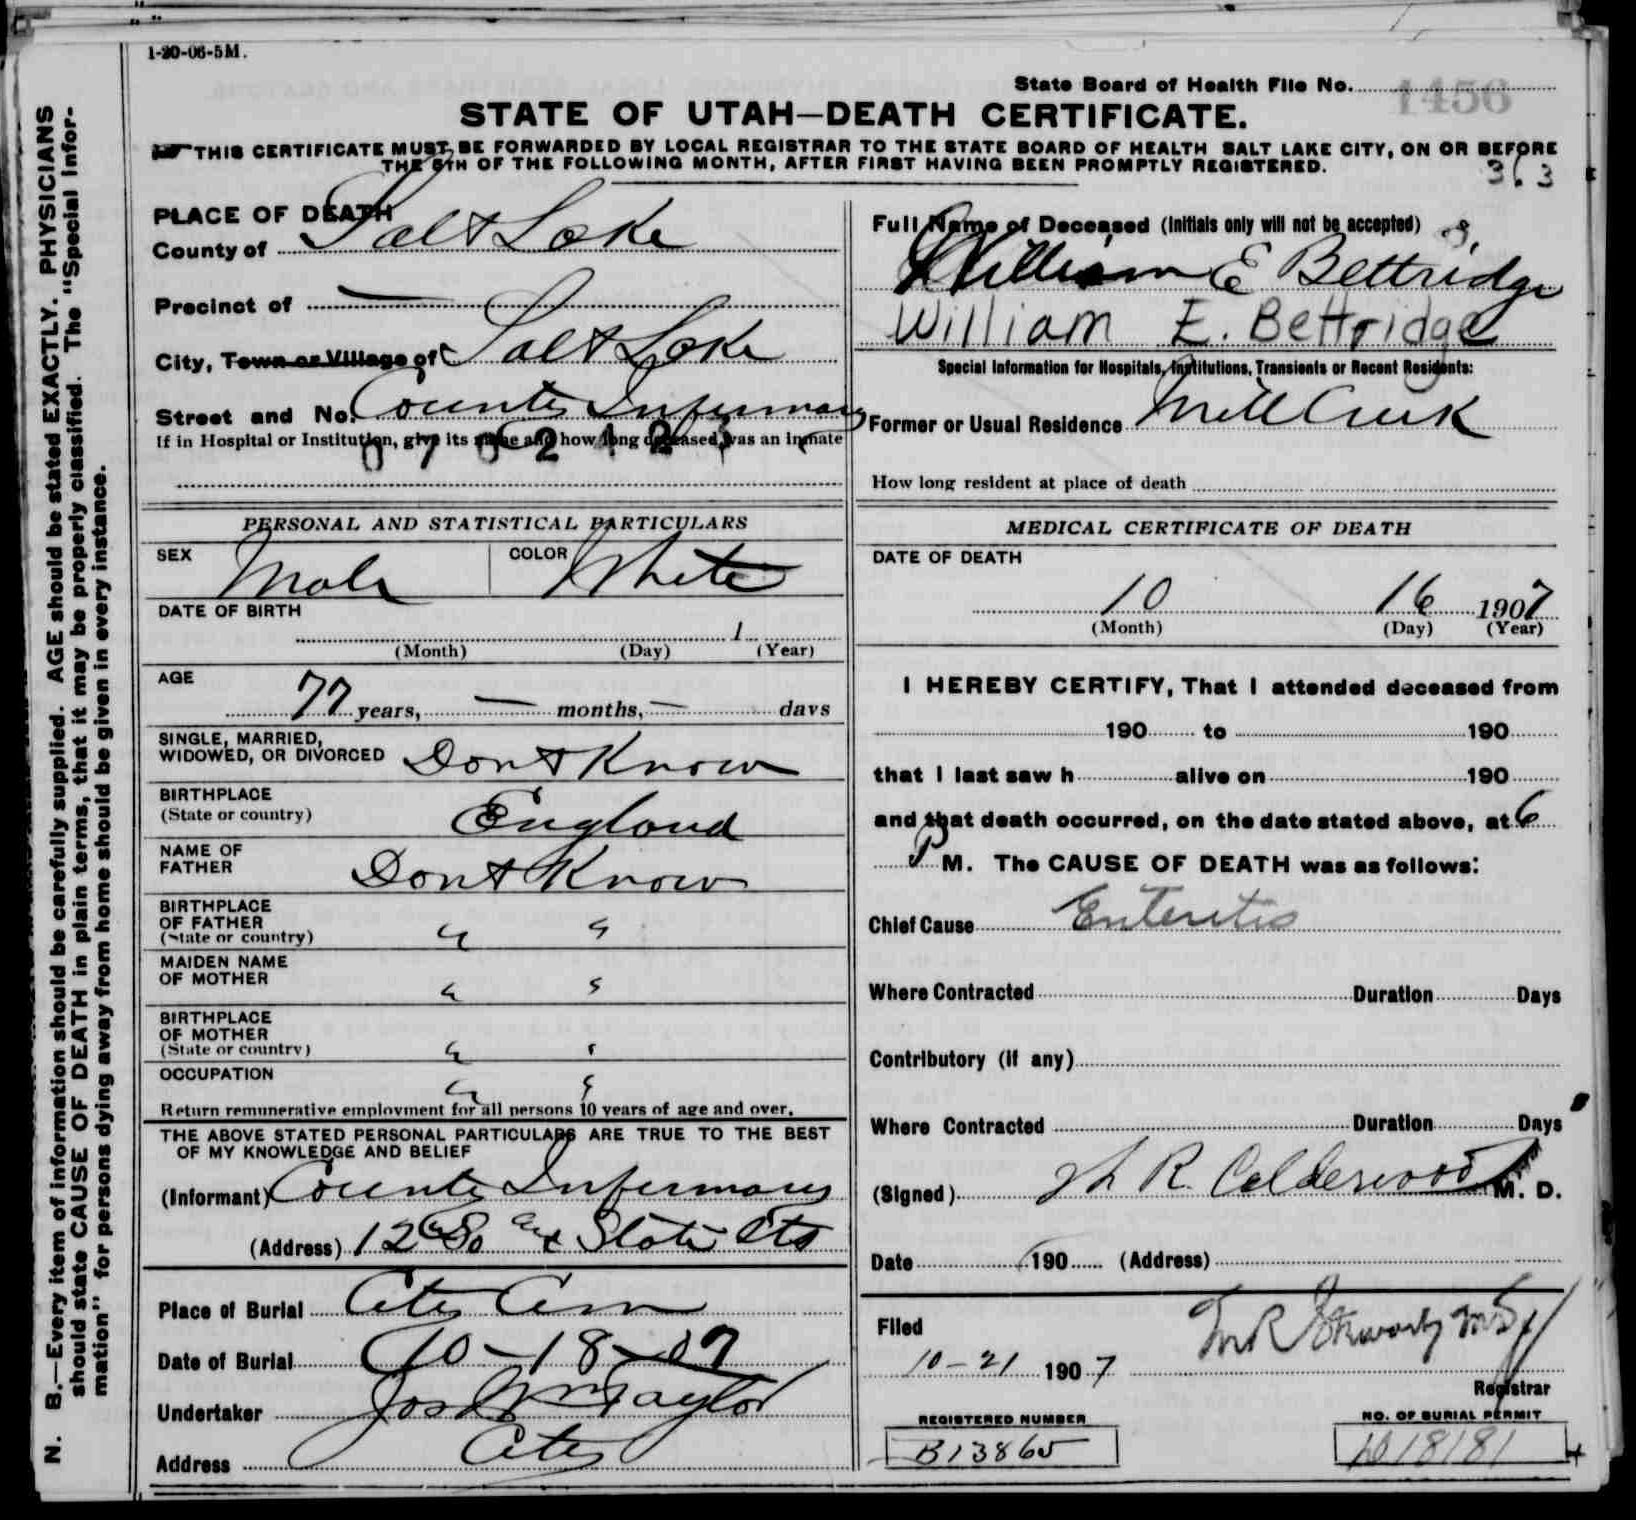 1-20-06-5M.
State Board of Health File No. 1456
STATE OF UTAH—DEATH CERTIFICATE.
THIS CERTIFICATE MUST BE FORWARDED BY LOCAL REGISTRAR TO THE STATE BOARD OF HEALTH SALT LAKE CITY, ON OR BEFORE
THE 5TH OF THE FOLLOWING MONTH, AFTER FIRST HAVING BEEN PROMPTLY REGISTERED.
363
PLACE OF DEATH
County of Salt Lake
Precinct of —
City, Town or Village of Salt Lake
Street and No. County Infirmary
If in Hospital or Institution, give its name and how long deceased was an inmate
PERSONAL AND STATISTICAL PARTICULARS
SEX Male COLOR White
DATE OF BIRTH
1
(Month) (Day) (Year)
AGE
77 years, — months, — days
SINGLE, MARRIED,
WIDOWED, OR DIVORCED Dont Know
BIRTHPLACE
(State or country) England
NAME OF
FATHER Dont Know
BIRTHPLACE
OF FATHER
(State or country) " "
MAIDEN NAME
OF MOTHER " "
BIRTHPLACE
OF MOTHER
(State or country) " "
OCCUPATION " "
Return remunerative employment for all persons 10 years of age and over.
THE ABOVE STATED PERSONAL PARTICULARS ARE TRUE TO THE BEST
OF MY KNOWLEDGE AND BELIEF
(Informant) County Infirmary
(Address) 12 So & State Sts
Place of Burial City Cem
Date of Burial 10-18-07
Undertaker Jos Wm Taylor
Address City
Full Name of Deceased (Initials only will not be accepted)
William E Bettridge
William E. Bettridge
Special Information for Hospitals, Institutions, Transients or Recent Residents:
Former or Usual Residence Mill Creek
How long resident at place of death
MEDICAL CERTIFICATE OF DEATH
DATE OF DEATH
10 16 1907
(Month) (Day) (Year)
I HEREBY CERTIFY, That I attended deceased from
190 to 190
that I last saw h alive on 190
and that death occurred, on the date stated above, at 6
P M. The CAUSE OF DEATH was as follows:
Chief Cause Enteritis
Where Contracted Duration Days
Contributory (if any)
Where Contracted Duration Days
(Signed) R. Calderwood M. D.
Date 190 (Address)
Filed
10-21 1907
Registrar
REGISTERED NUMBER
B13865
NO. OF BURIAL PERMIT
N. B.—Every item of information should be carefully supplied. AGE should be stated EXACTLY. PHYSICIANS
should state CAUSE OF DEATH in plain terms, that it may be properly classified. The "Special Infor-
mation" for persons dying away from home should be given in every instance.